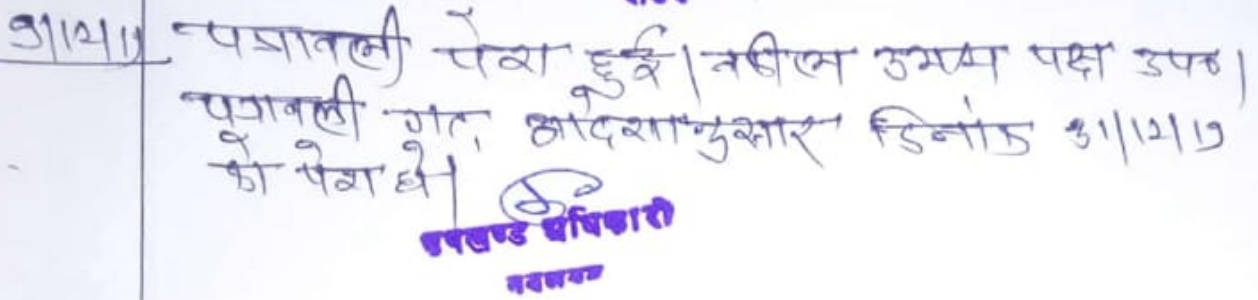 पत्रावली पेश हुई। वकील उभय पक्ष उप०।
पत्रावली गत आदेशानुसार दिनांक 31/12/19
को पेश हो।
उपखण्ड अधिकारी